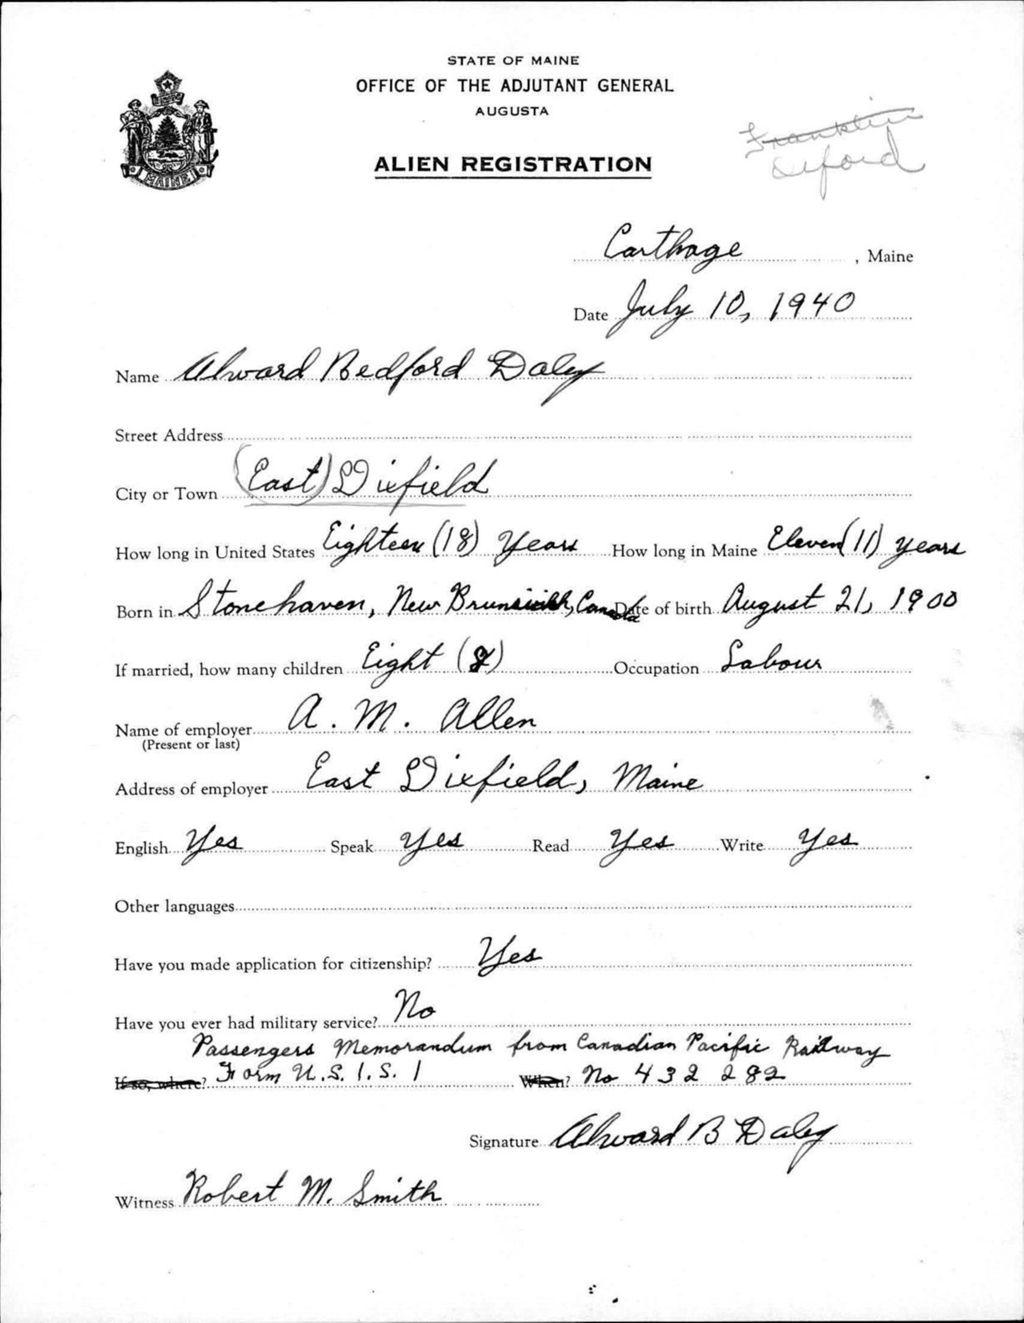 STATE OF MAINE
OFFICE OF THE ADJUTANT GENERAL
AUGUSTA
ALIEN REGISTRATION
Franklin
Oxford
MAINE
Carthage, Maine
Date July 10, 1940
Name Alward Bedford Daley
Street Address
City or Town (East) Dixfield
How long in United States Eighteen (18) Years How long in Maine Eleven (11) years
Born in Stonehaven, New Brunswick, Canada Date of birth August 21, 1900
If married, how many children Eight (8) Occupation Labour
Name of employer A. M. Allen
(Present or last)
Address of employer East Dixfield, Maine
English Yes Speak Yes Read Yes Write Yes
Other languages
Have you made application for citizenship? Yes
Have you ever had military service? No
Passengers Memorandum from Canadian Pacific Railway
If so, where? Form U.S. I. S. 1 When? No 432 282
Signature Alward B Daley
Witness Robert M. Smith